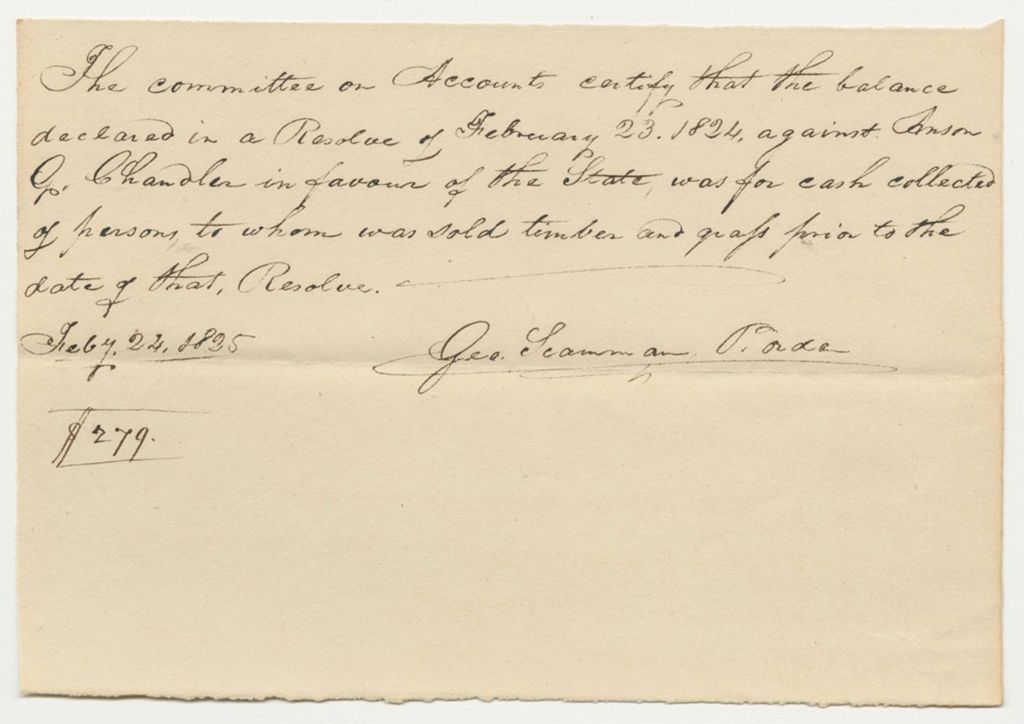 The committee on Accounts certify that the balance
declared in a Resolve of February 23. 1824, against Anson
G. Chandler in favour of the State, was for cash collected
of persons, to whom was sold timber and grass prior to the
date of that, Resolve.
Feby. 24. 1825 Geo. Scamman P. order
$279.